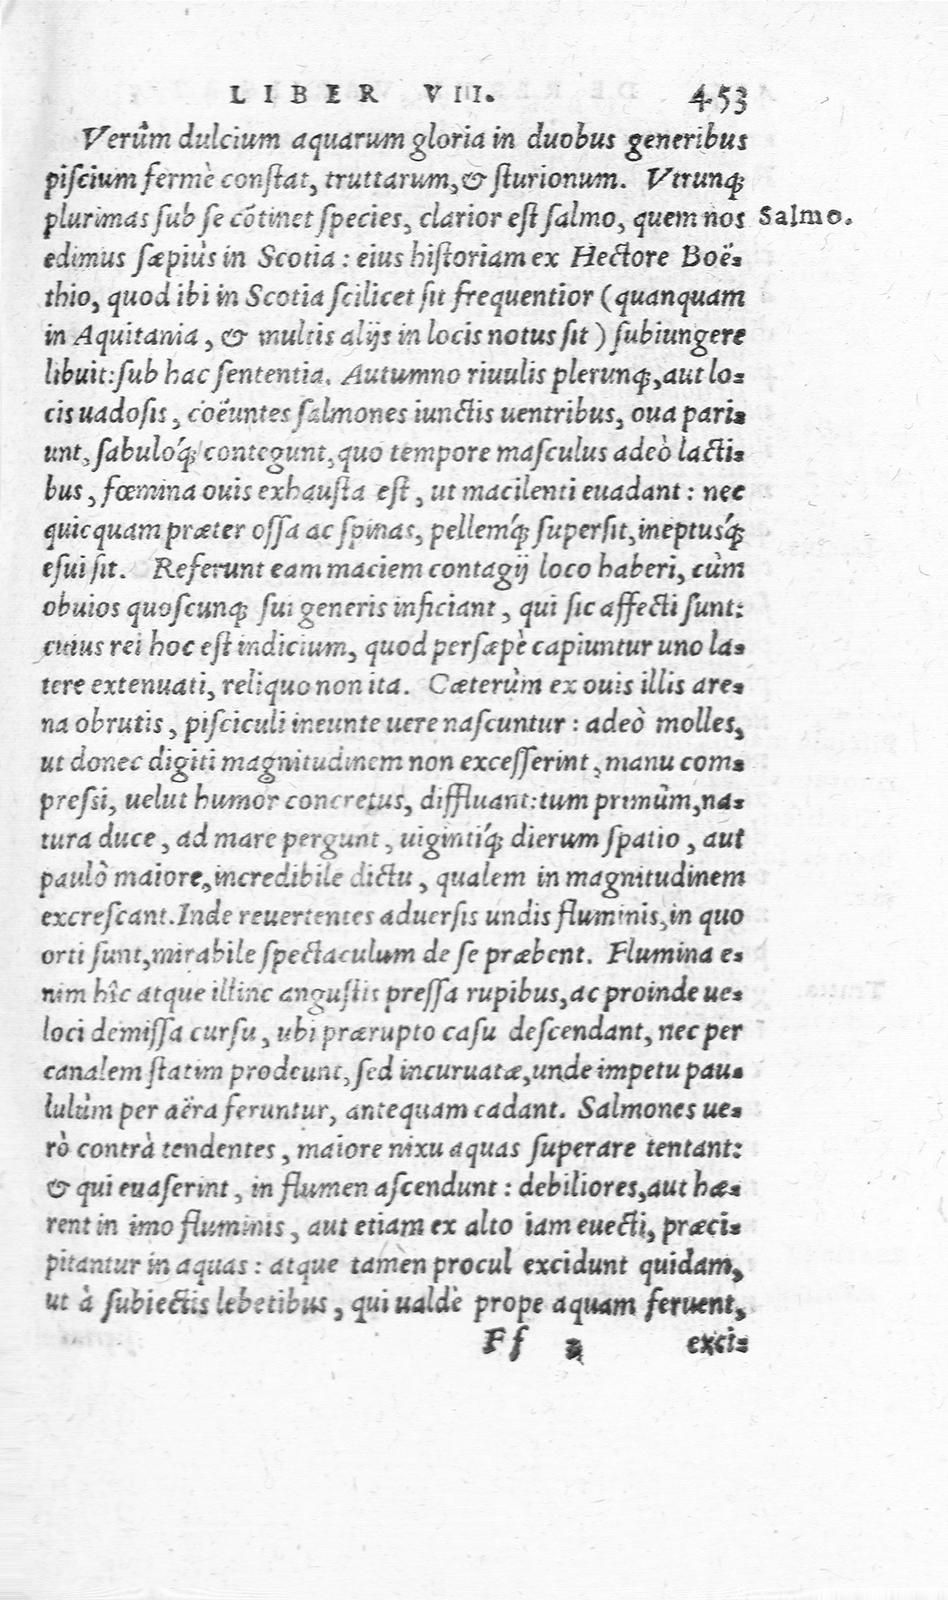 LIBER VII. 453
Verùm dulcium aquarum gloria in duobus generibus
piſcium fermè conſtat, truttarum, & ſturionum. Vtrunq́;
plurimas ſub ſe cõtinet ſpecies, clarior eſt ſalmo, quem nos
Salmo.
edimus ſæpiùs in Scotia: eius hiſtoriam ex Hectore Boë-
thio, quod ibi in Scotia ſcilicet ſit frequentior (quanquam
in Aquitania, & multis alijs in locis notus ſit) ſubiungere
libuit: ſub hac ſententia. Autumno riuulis plerunq;, aut lo-
cis uadoſis, coëuntes ſalmones iunctis uentribus, oua pari-
unt, ſabuloq́; contegunt, quo tempore maſculus adeò lacti-
bus, fœmina ouis exhauſta eſt, ut macilenti euadant: nec
quicquam præter oſſa ac ſpinas, pellemq́; ſuperſit, ineptusq́;
eſui ſit. Referunt eam maciem contagij loco haberi, cùm
obuios quoſcunq; ſui generis inficiant, qui ſic affecti ſunt:
cuius rei hoc eſt indicium, quod perſæpè capiuntur uno la-
tere extenuati, reliquo non ita. Cæterùm ex ouis illis are-
na obrutis, piſciculi ineunte uere naſcuntur: adeò molles,
ut donec digiti magnitudinem non exceſſerint, manu com-
preſsi, uelut humor concretus, diffluant: tum primùm, na-
tura duce, ad mare pergunt, uigintiq́; dierum ſpatio, aut
paulò maiore, incredibile dictu, qualem in magnitudinem
excreſcant. Inde reuertentes aduerſis undis fluminis, in quo
orti ſunt, mirabile ſpectaculum de ſe præbent. Flumina e-
nim hîc atque illinc anguſtis preſſa rupibus, ac proinde ue-
loci demiſſa curſu, ubi prærupto caſu deſcendant, nec per
canalem ſtatim prodeunt, ſed incuruatæ, unde impetu pau-
lulùm per aëra feruntur, antequam cadant. Salmones ue-
rò contrà tendentes, maiore nixu aquas ſuperare tentant:
& qui euaſerint, in flumen aſcendunt: debiliores, aut hæ-
rent in imo fluminis, aut etiam ex alto iam euecti, præci-
pitantur in aquas: atque tamen procul excidunt quidam,
ut à ſubiectis lebetibus, qui ualdè prope aquam feruent,
Ff 2 exci-